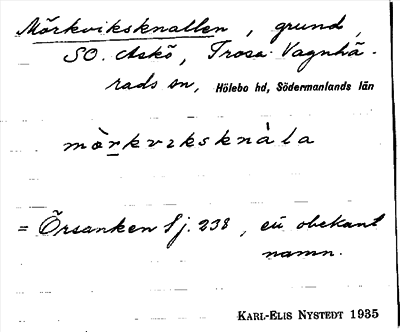 Mörkviksknallen, grund,
SO. Askö, Trosa-Vagnhä-
rads sn, Hölebo hd, Södermanlands län
mö̀rkvıksknàla
= Örsanken Sj. 238, en obekant
namn.
KARL-ELIS NYSTEDT 1935